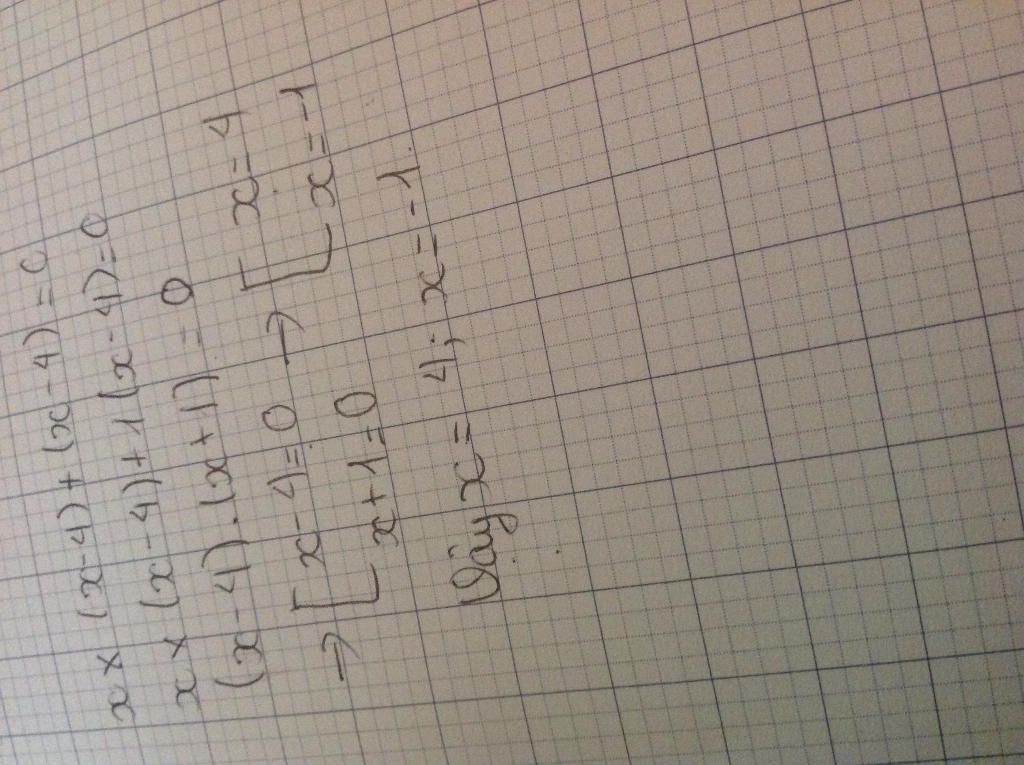 x × (x - 4) + (x - 4) = 0
x × (x - 4) + 1 (x - 4) = 0
(x - 4) . (x + 1) = 0
→ [ x - 4 = 0 → [ x = 4
x + 1 = 0 x = -1
Vậy x = 4; x = -1.